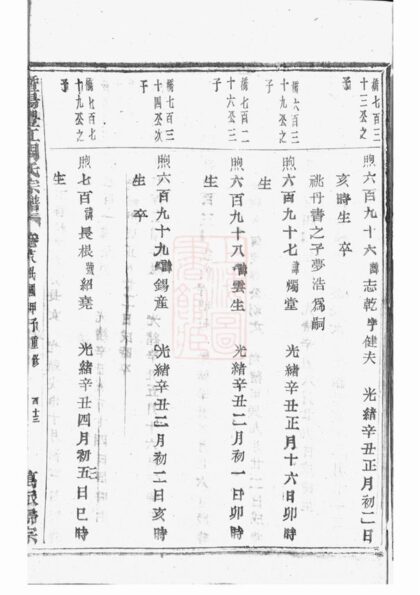 橋七百三
十三公之
子
煦六百九十六諱志乾字健夫 光緒辛丑正月初二日
亥時生 卒
祧丹書之子夢浩為嗣
橋六百三
十九公之
子
煦六百九十七諱燭堂 光緒辛丑正月十六日卯時
生
橋七百二
十六公三
子
煦六百九十八諱雲生 光緒辛丑二月初一日卯時
生 卒
橋七百三
十四公次
子
煦六百九十九諱錫産 光緒辛丑二月初二日亥時
生 卒
橋七百七
十九公之
子
煦七百諱長根號紹堯 光緒辛丑四月初五日巳時
生
暨陽 江周氏宗譜 卷 民國甲子重修 四十三